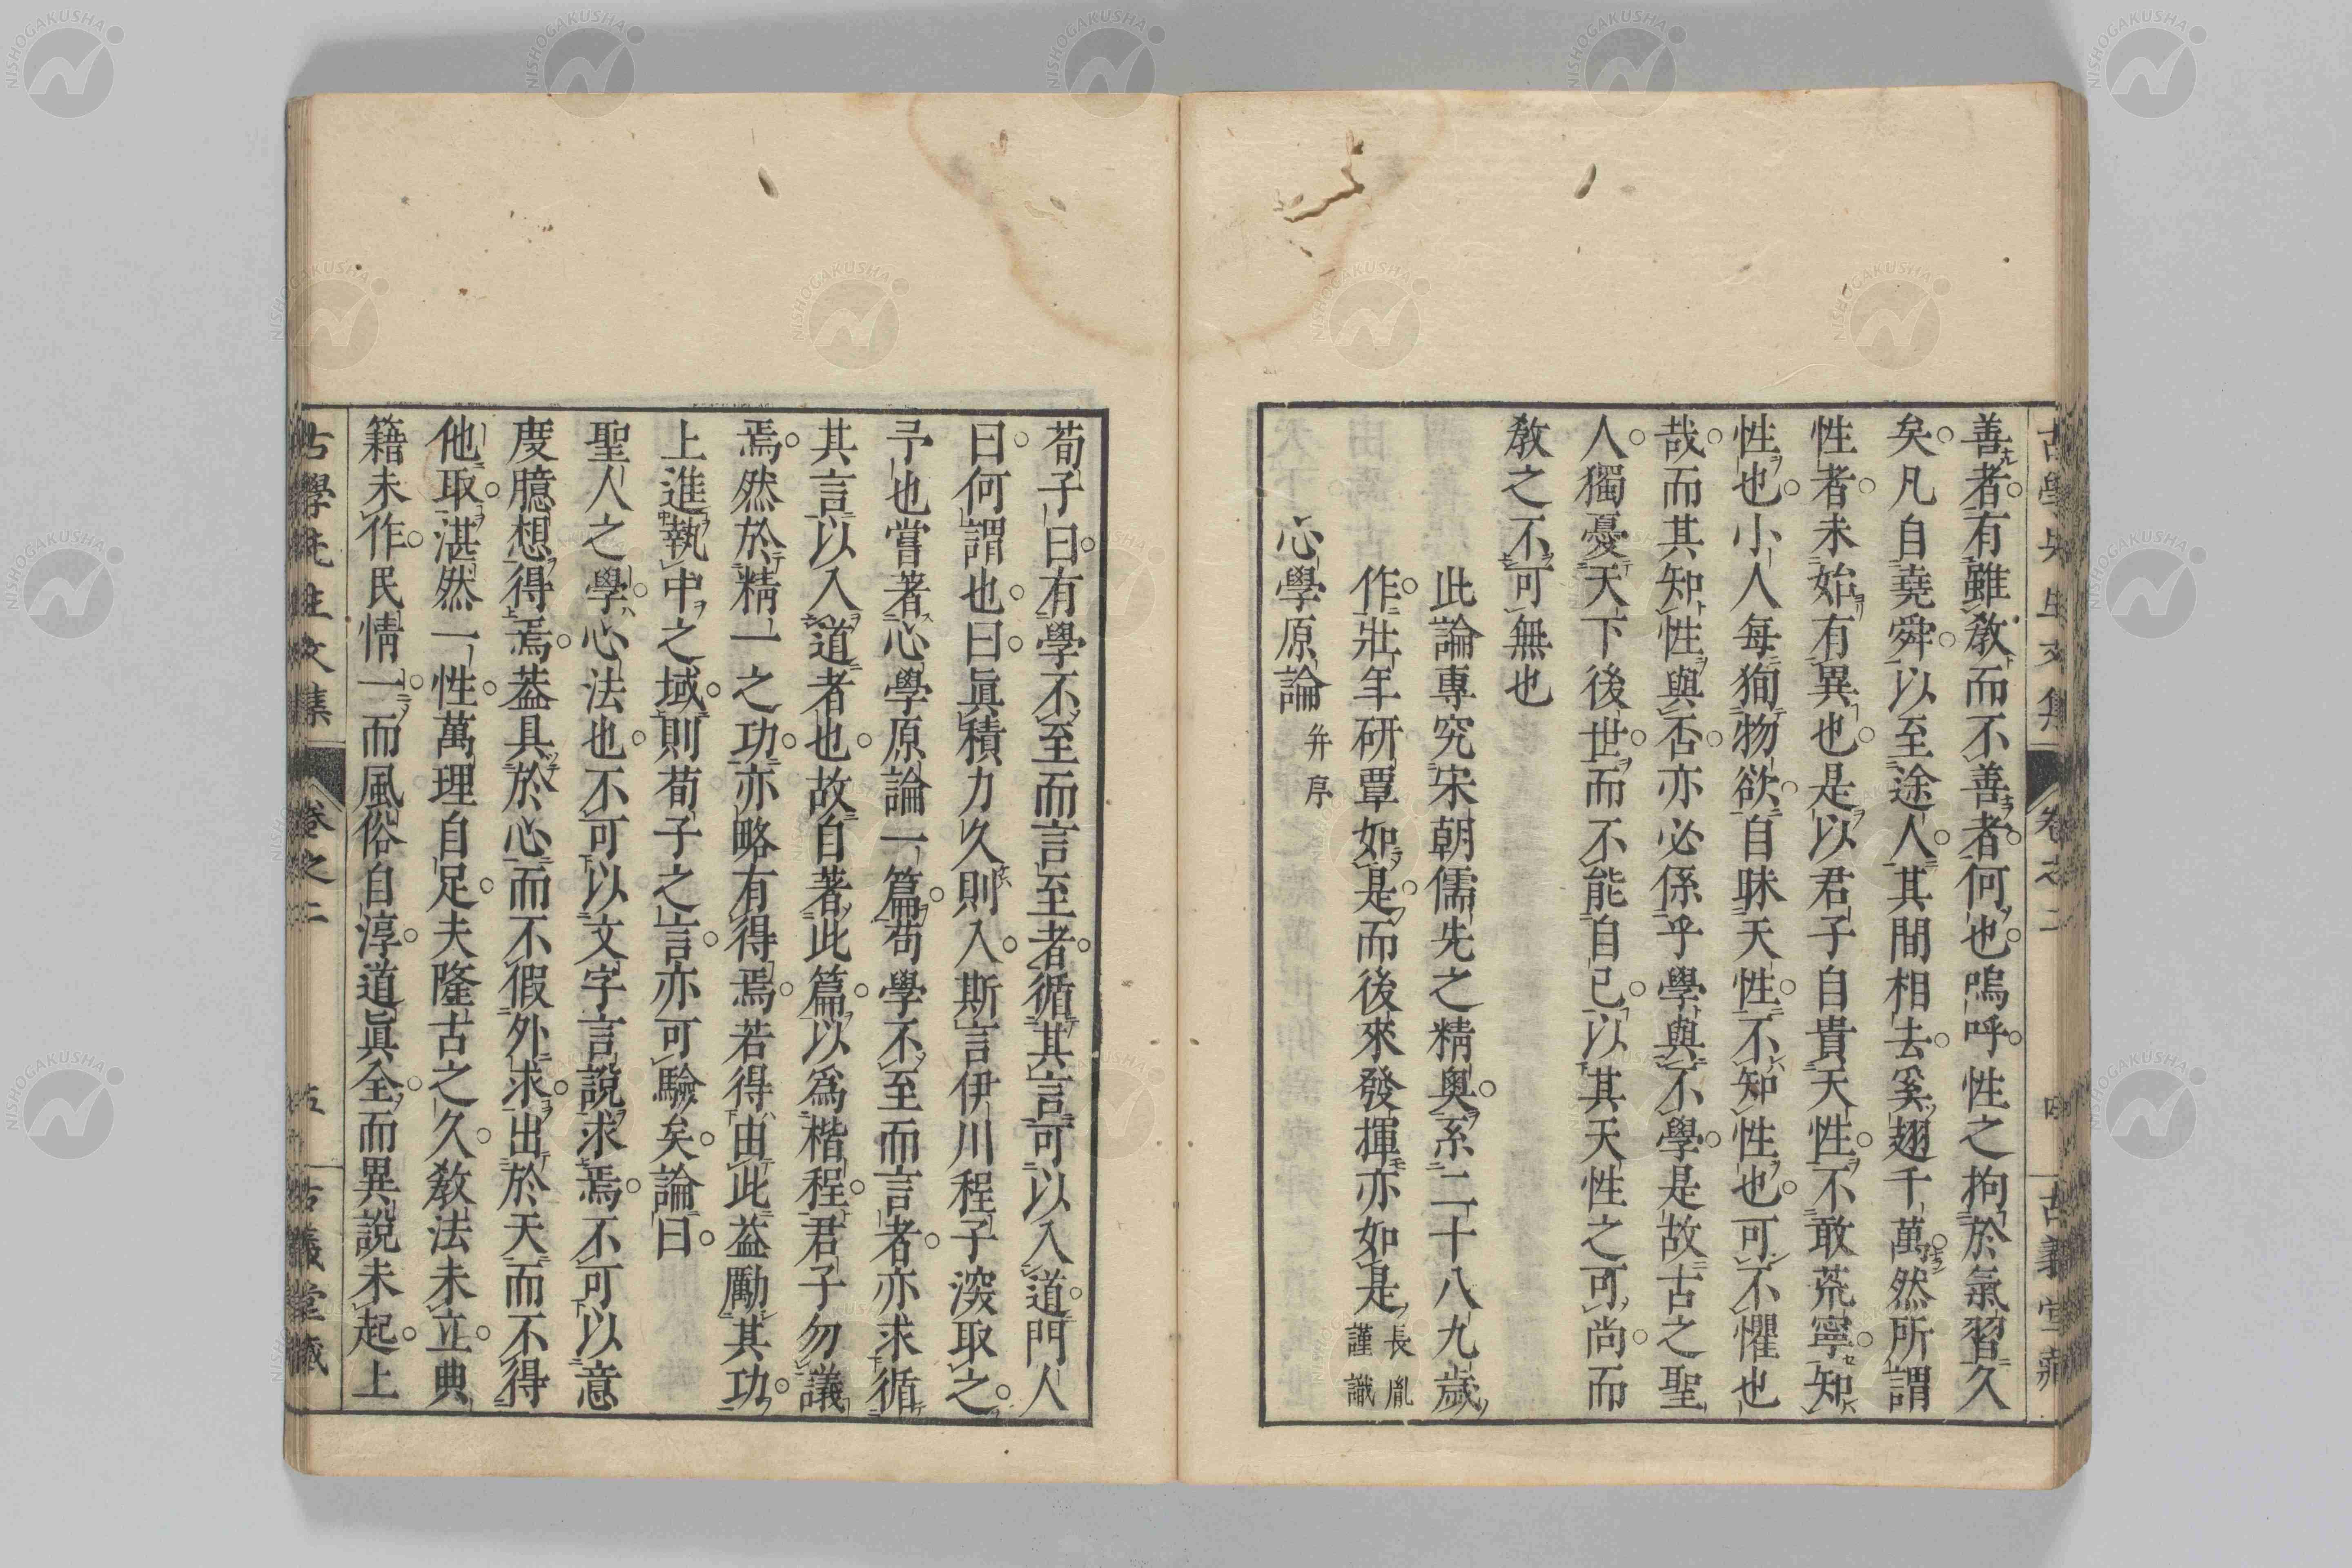 善者有雖敎而不善者何也嗚呼性之拘於氣習久
矣凡自堯舜以至途人其間相去奚翅千萬然所謂
性者未始有異也是以君子自貴天性不敢荒寧知
性也小人每狥物欲自昧天性不知性也可不懼也
哉而其知性與否亦必係乎學與不學是故古之聖
人獨憂天下後世而不能自已以其天性之可尚而
敎之不可無也
此論專究宋朝儒先之精奧系二十八九歲
作壯年研覃如是而後來發揮亦如是長胤謹識
心學原論并序
荀子曰有學不至而言至者循其言可以入道門人
曰何謂也曰眞積力久則入斯言伊川程子深取之
予也嘗著心學原論一篇苟學不至而言者亦求循
其言以入道者也故自著此篇以爲楷程君子勿議
焉然於精一之功亦略有得焉若得由此益勵其功
上進執中之域則荀子之言亦可驗矣論曰
聖人之學心法也不可以文字言說求焉不可以意
度臆想得焉葢具於心而不假外求出於天而不得
他取湛然一性萬理自足夫隆古之久敎法未立典
籍未作民情一而風俗自淳道眞全而異說未起上
古學先生文集 卷之二 五 古義堂藏